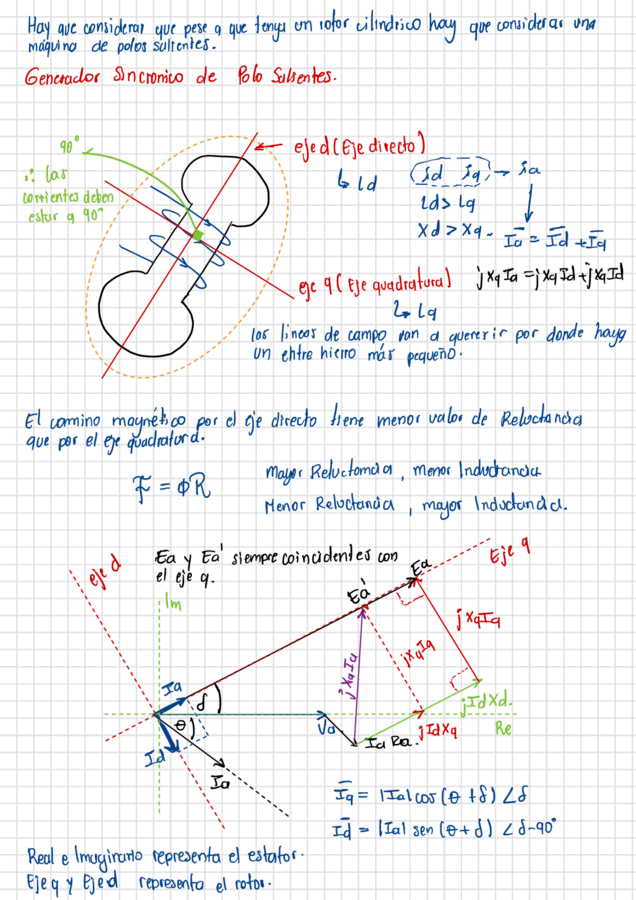 Hay que considerar que pese a que tenga un rotor cilíndrico hay que considerar una
máquina de polos salientes.
Generador Sincronico de Polo Salientes.
90°
∴ las
corrientes deben
estar a 90°
eje d (Eje directo)
↳ Ld
(id iq) → ia
Ld > Lq
Xd > Xq.
Ia = Id + Iq
eje q (Eje quadratura)
jXqIa = jXqId + jXqId
↳ Lq
los lineas de campo van a quererir por donde haya
un entre hierro más pequeño.
El camino magnético por el eje directo tiene menor valor de Reluctancia
que por el eje quadratura.
F = ϕR
Mayor Reluctancia, menor Inductancia
Menor Reluctancia, mayor Inductancia.
Ea y Ea' siempre coincidentes con
el eje q.
eje d
Im
Eje q
Ea
Ea'
jXqIq
jXqIq
jXqIa
Ia
δ
θ
Id
Ia
Va
Ia Ra.
jIdXq
jIdXd.
Re
Iq = |Ia| cos(θ + δ) ∠δ
Id = |Ia| sen(θ + δ) ∠δ-90°
Real e Imaginario representa el estator.
Eje q y Eje d representa el rotor.